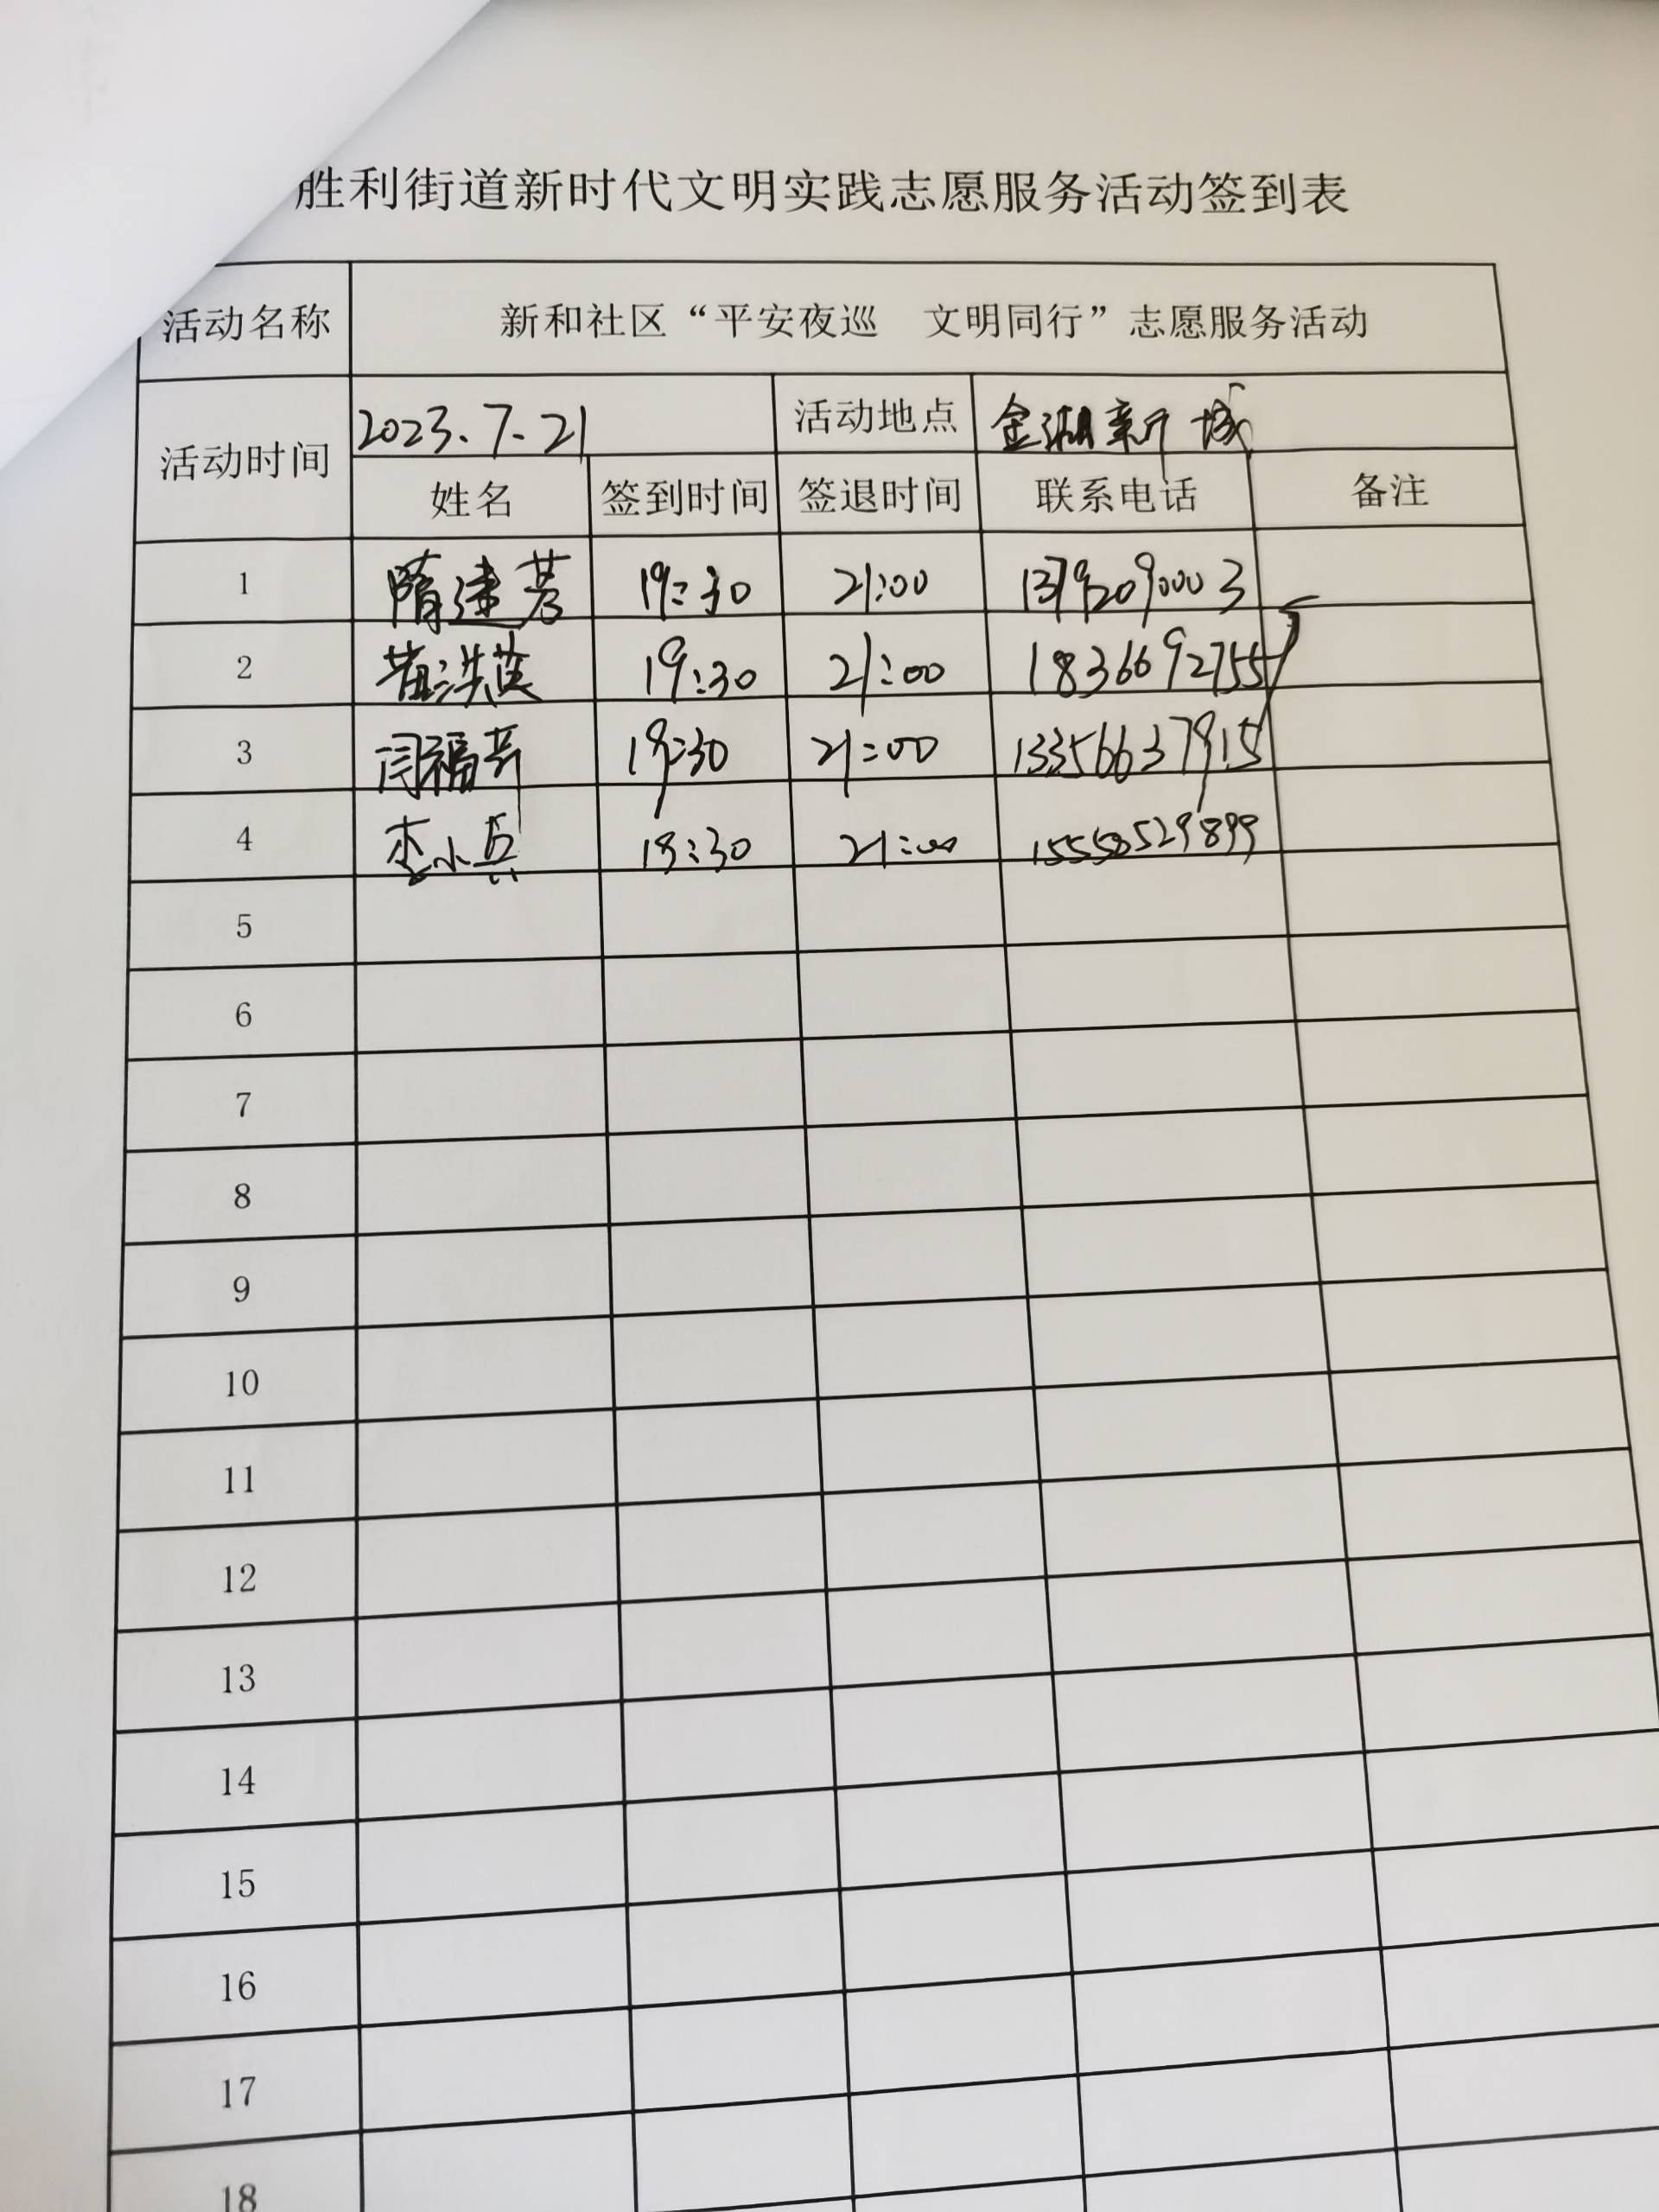 胜利街道新时代文明实践志愿服务活动签到表
活动名称 新和社区“平安夜巡 文明同行”志愿服务活动
活动时间 2023.7.21 活动地点 金湖新城
姓名 签到时间 签退时间 联系电话 备注
1 隋建芳 19:30 21:00 13792090003
2 19:30 21:00 18366927557
3 闫福芹 19:30 21:00 13356637915
4 李小兵 19:30 21:00
5
6
7
8
9
10
11
12
13
14
15
16
17
18